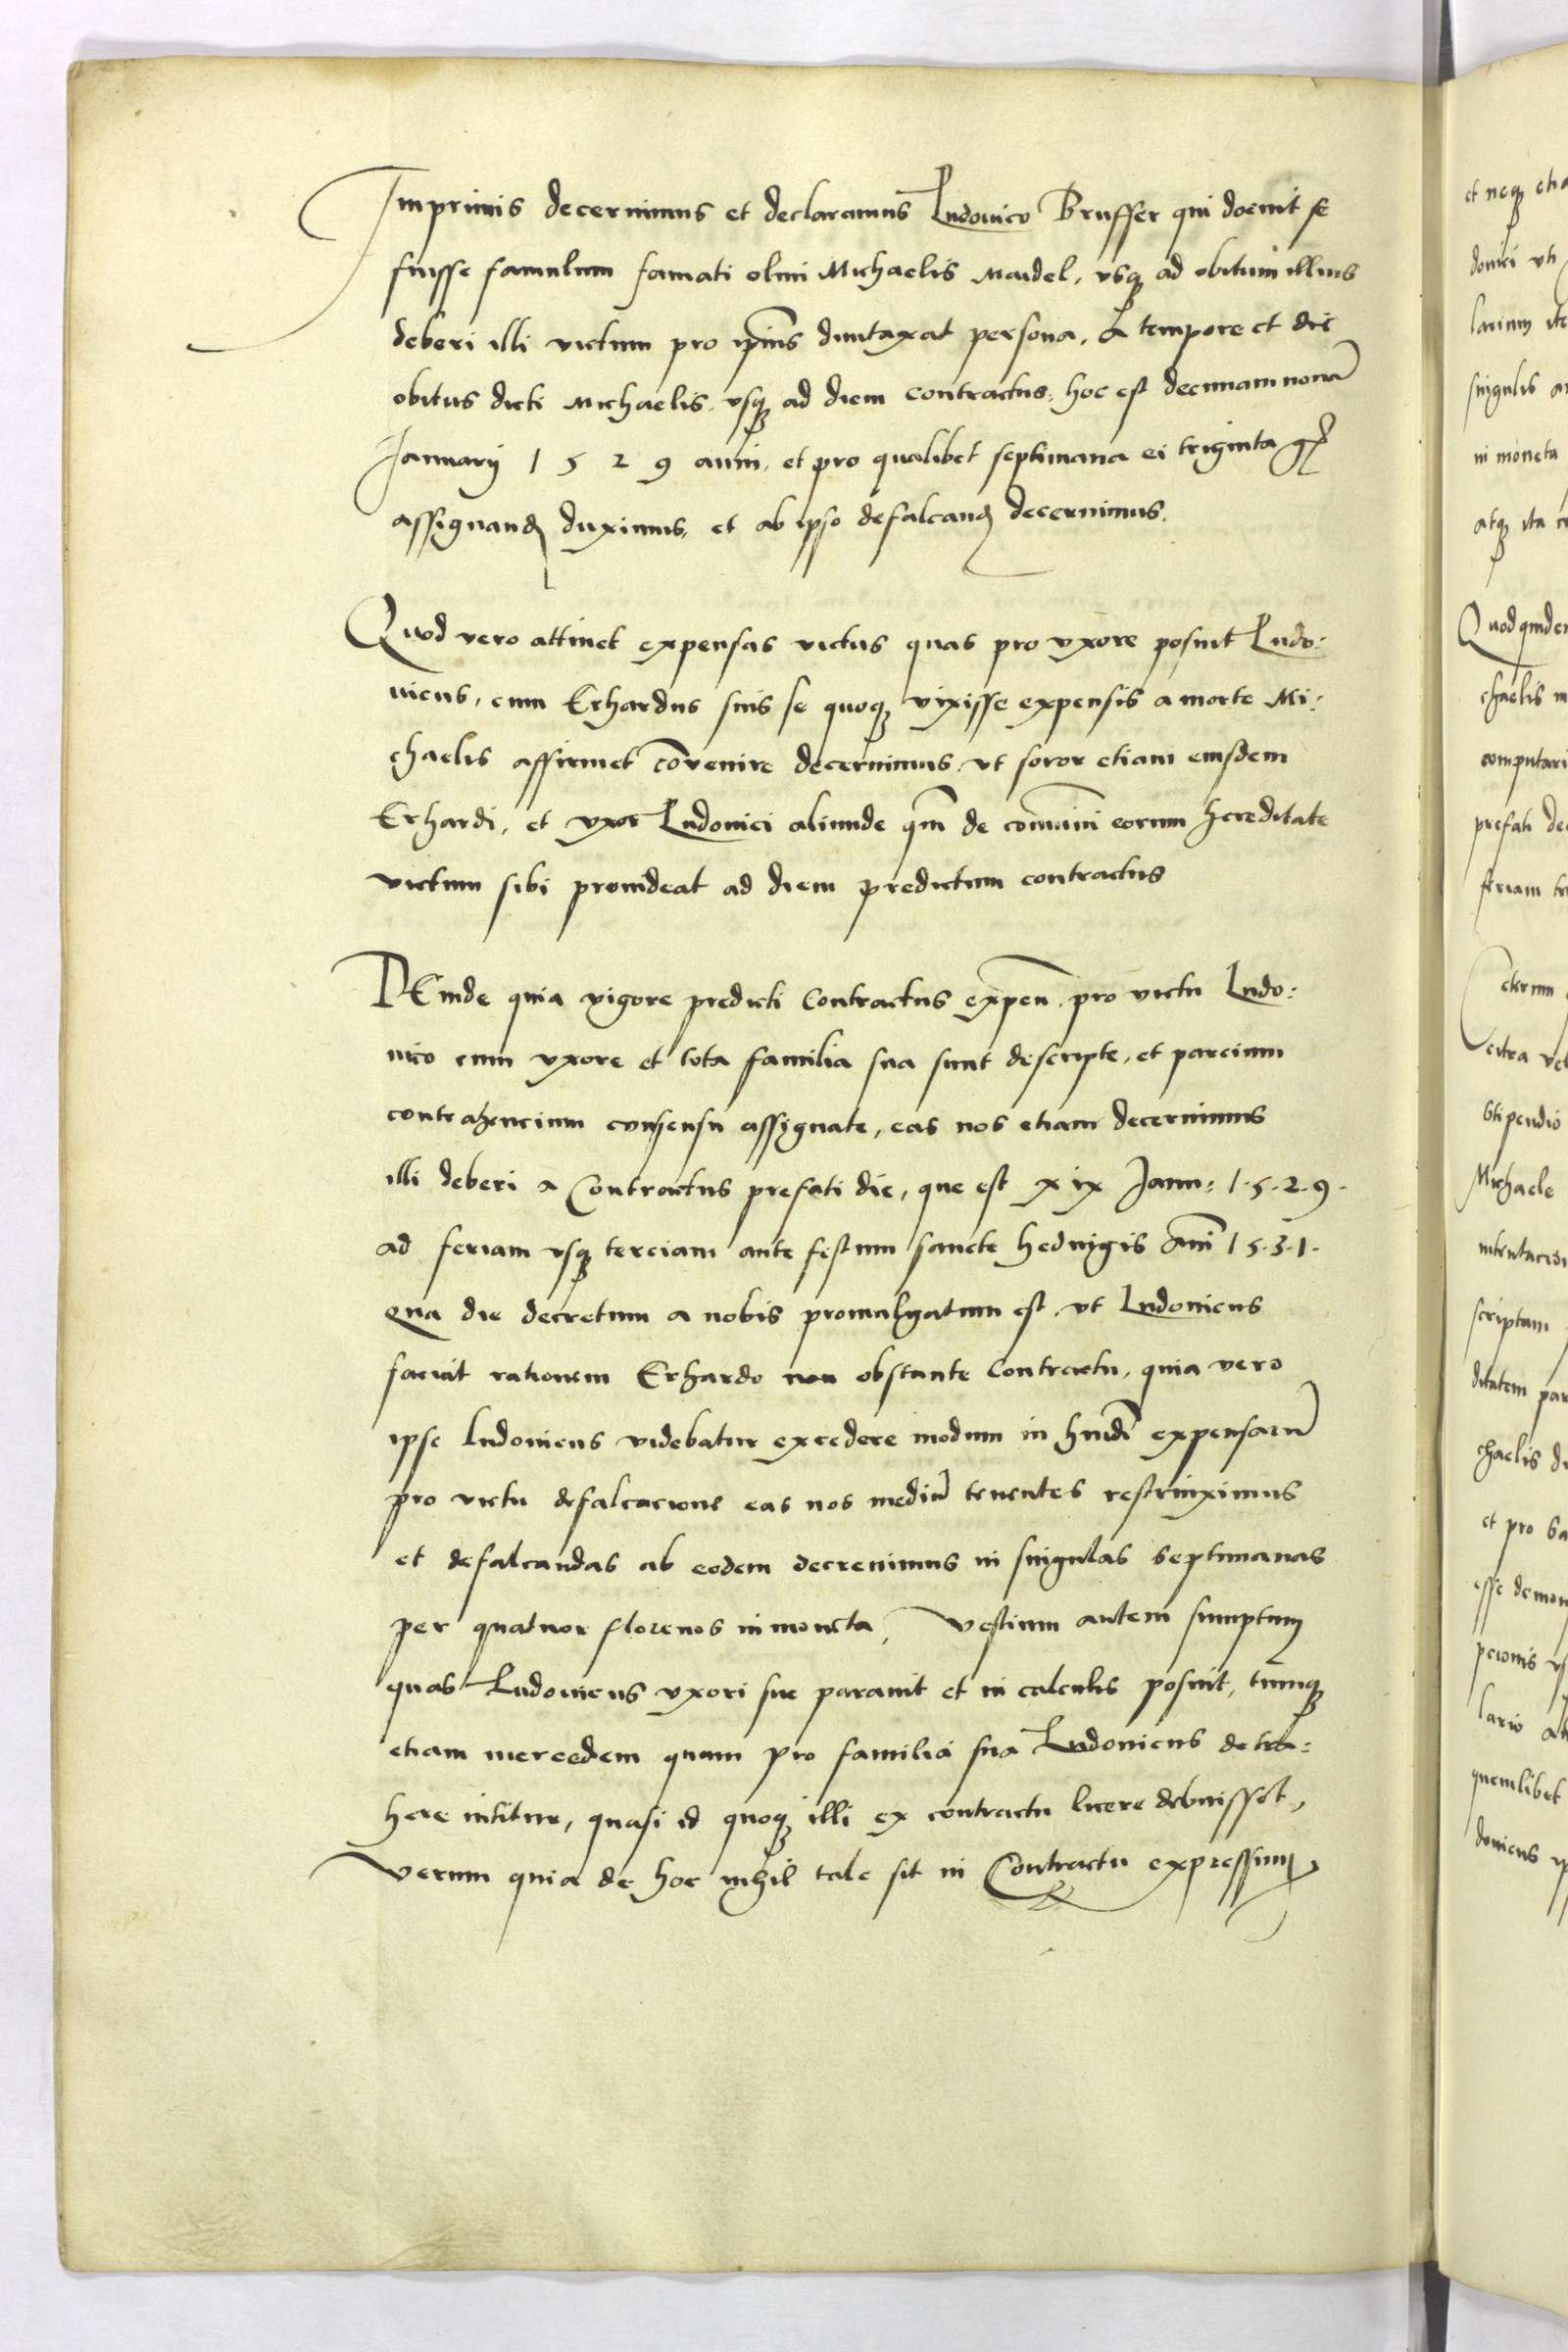 Imprimis decernimus et declaramus Ludovico Brusser qui docuit se
fuisse famulum famati olim Michaelis Maidel, vsq̧ ad obitum illius
deberi illi victum pro ip̄ius duntaxat persona, A tempore et die
obitus dicti Michaelis vsq̧ ad diem contractus: hoc est decimam nonā
Januarij 1 5 2 9 anni, et pro qualibet septimana ei triginta gr̄
assignand̨ duximus, et ab ipso defalcand̨ decernimus.
Quod vero attinet expensas victus quas pro vxore posuit Ludo:
uicus, cum Erhardus suis se quoq̧ vixisse expensis a morte Mi:
chaelis affirmet cōvenire decernimus vt soror etiam eiusdem
Erhardi, et vxor Ludouici aliunde qm̄ de com̄uni eorum hereditate
victum sibi prouideat ad diem predictum contractus
DEinde quia vigore predicti Contractus expen̄. pro victu Ludo:
uico cum vxore et tota familia sua sunt descripte, et parcium
contrahencium consensu assignate, eas nos etiam decernimus
illi deberi a Contractus prefati die, que est xix Janu: 1·5·2·9·
ad feriam vsq̧ terciam ante festum sancte heduigis Ann̄i 1 5·3·1·
Qua die decretum a nobis promulgatum est vt Ludouicus
faciat rationem Erhardo non obstante Contractu, quia vero
ipse ludouicus videbatur excedere modum in hmōi expensarū
pro victu defalcacione eas nos mediū tenentes restrinximus
et defalcandas ab eodem decreuimus in singulas septimanas
per quatuor florenos in moneta, Vestium autem sumptum
quas Ludouicus vxori sue parauit et in calculis posuit, tumq̧
etiam mercedem quam pro familia sua Ludouicus detra:
here nititur, quasi id quoq̧ illi ex contractu licere debuisset,
Verum quia de hoc nihil tale sit in Contractu expressum
et neq̧
donici vti
singulis
in moneta
atq̧ ita
chaelis
computari
prefati
feriam
stipendio
Michaele
scriptam
chaelis
et pro
quemlibet